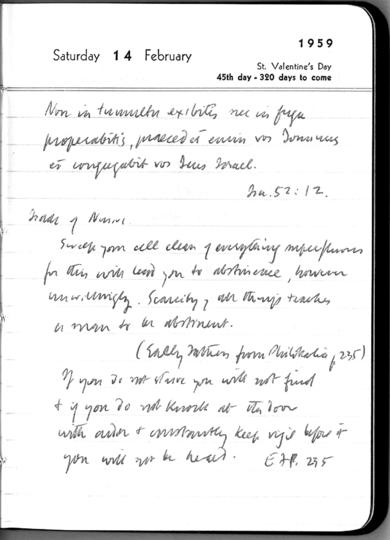 1959
Saturday 14 February
St. Valentine's Day
45th day - 320 days to come
Non in tumultu exibitis nec in fuga
properabitis, praecedet enim vos Dominus
et congregabit vos Deus Israel.
Isa. 52:12.
Isaac of Nineve.
Sweep your cell clean of everything superfluous
for this will lead you to abstinence, however
unwillingly. Scarcity of all things teaches
a man to be abstinent.
(Early Fathers from Philokalia, p 235)
If you do not starve you will not find
& if you do not knock at the door
with ardor & constantly keep vigil before it
you will not be heard. E.F.P. 235